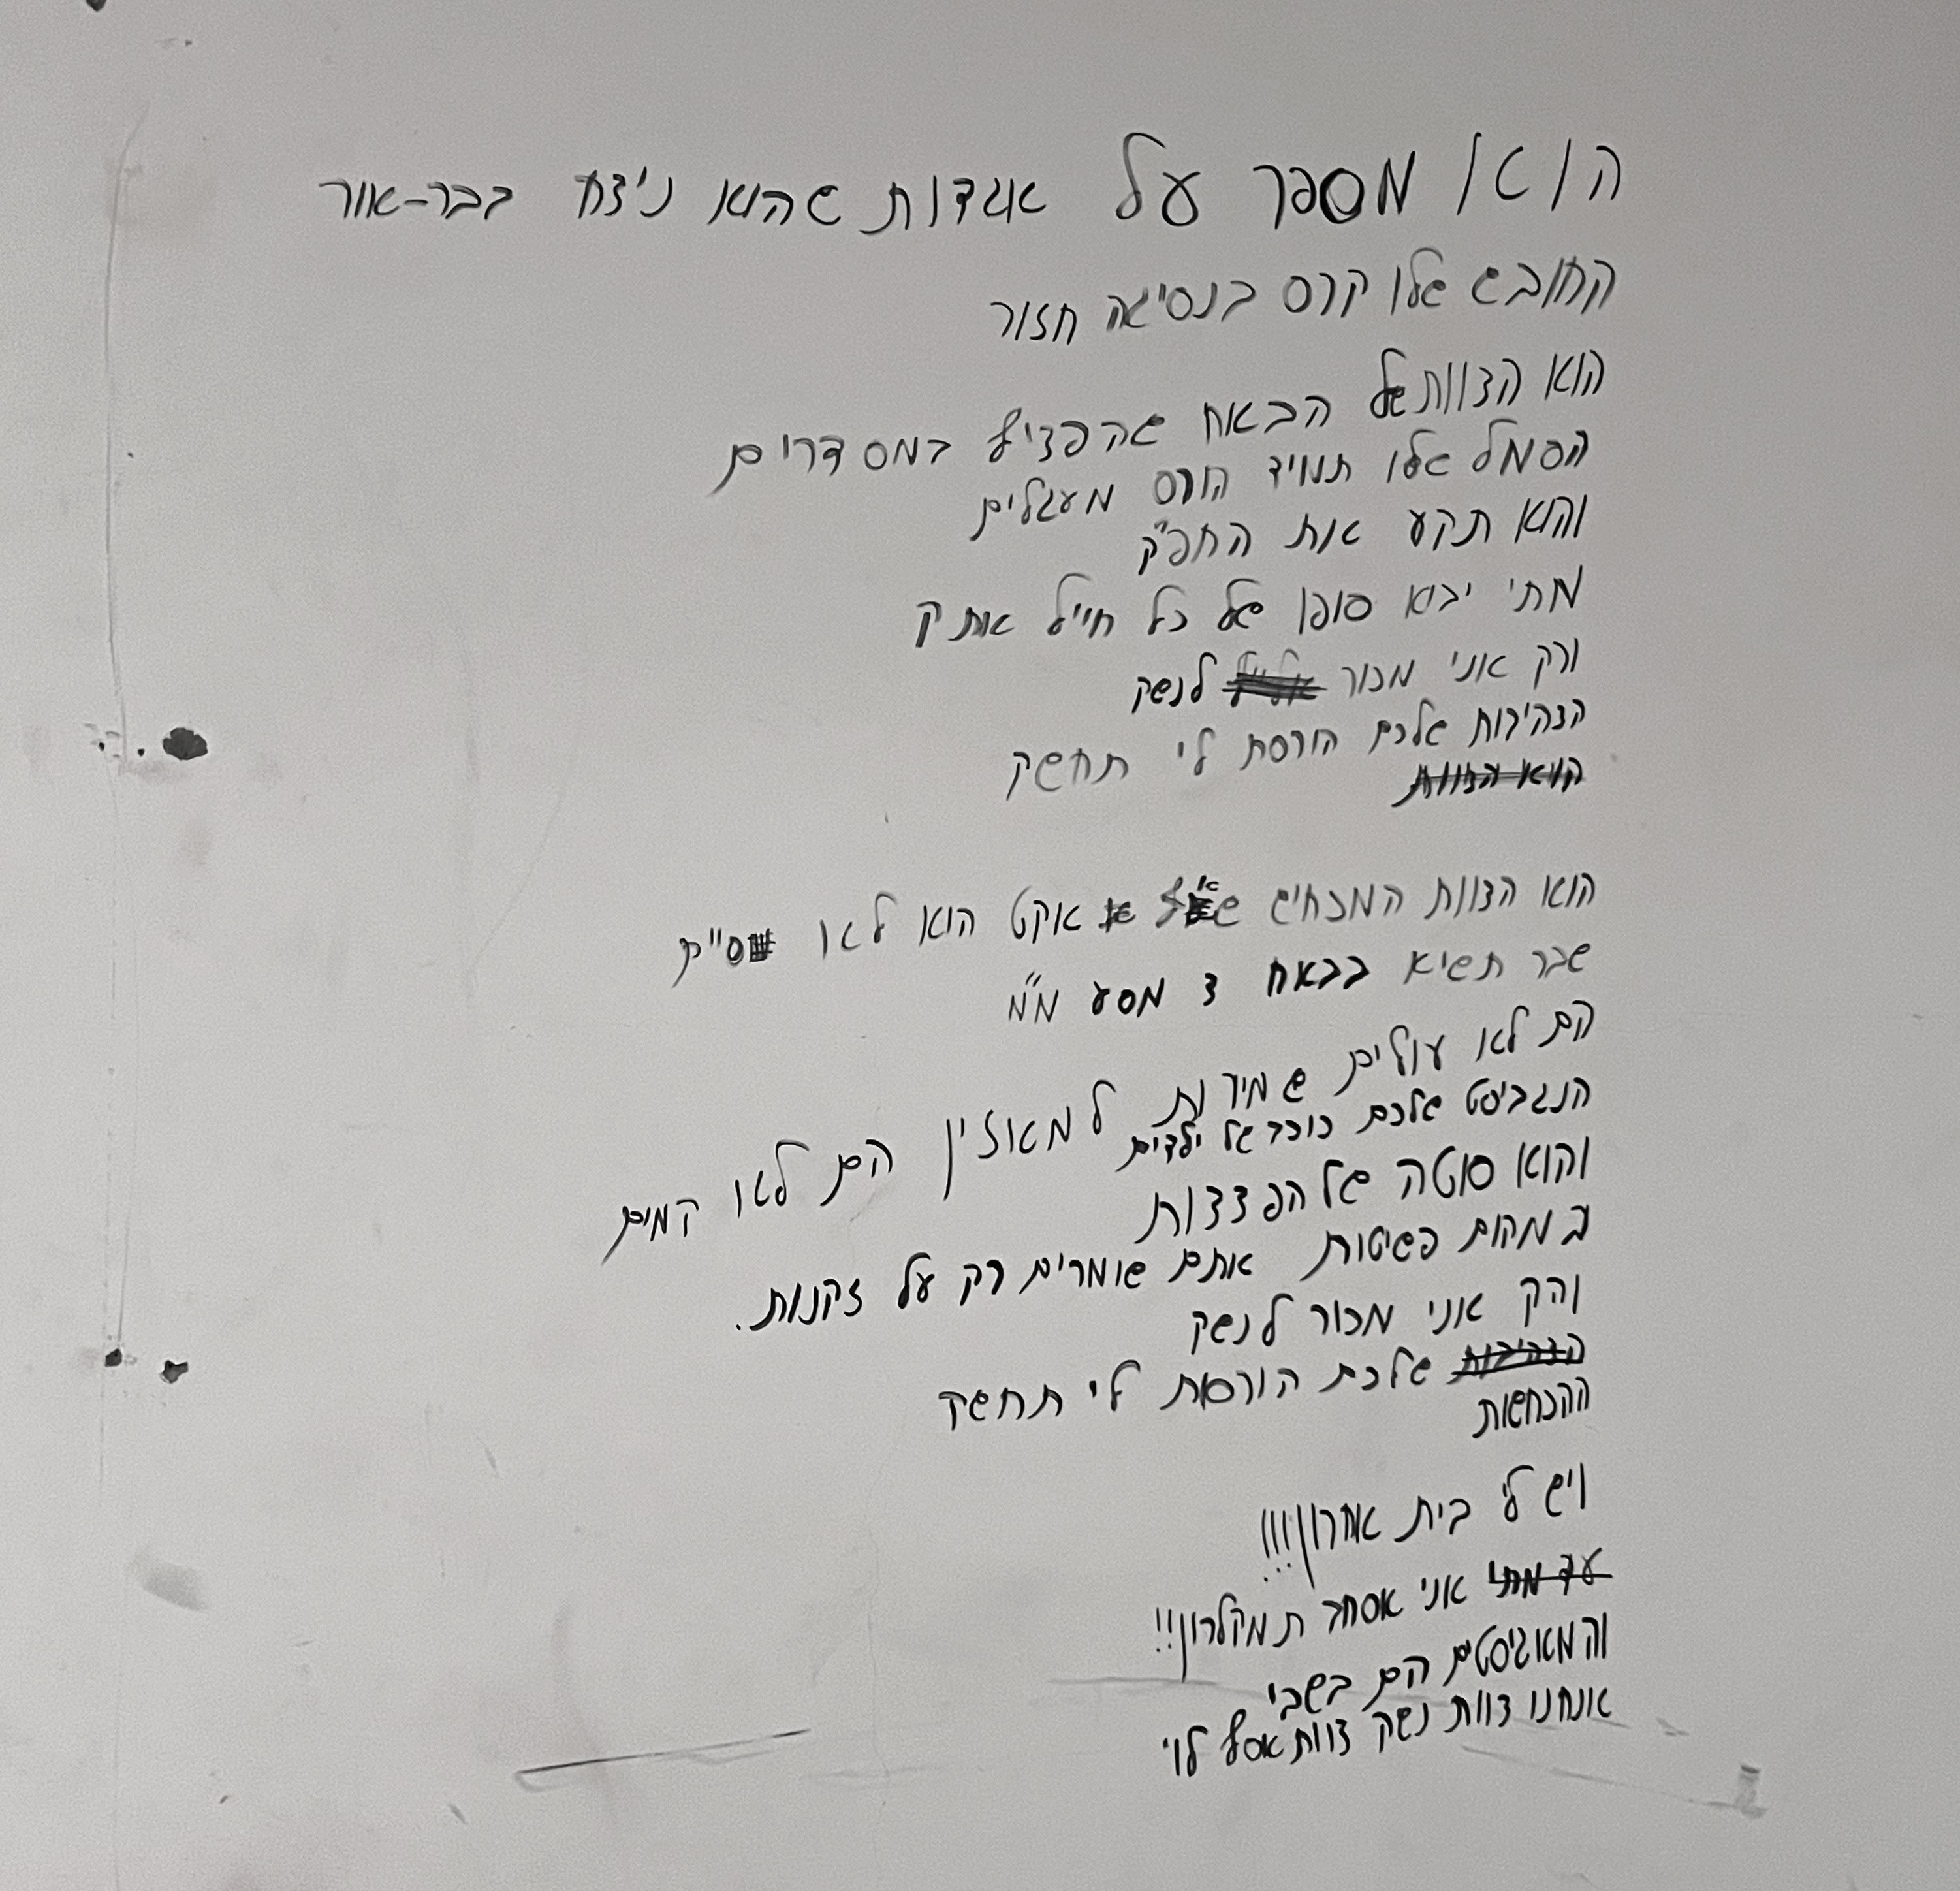 הוא מספר על אגדות שהוא ניצח בבר-אור
החובש שלו קרס בנסיגה חזור
הוא הצוות של הבאח שהפציץ במסדרים
הסמל שלו תמיד הורס מעגלים
והוא תקע את החפ"ק
מתי יבוא סופן של כל חייל
ורק אני מכור לנשק
הצהיבות שלכם הורסת לי תחשק
הוא הצוות
הוא הצוות המכחיש אקט הוא לאו
שבר תשיא בבאח 3 מסע מ"מ
הם לאו עולים שמירות למאזין הם לאו קמים
הנגביסט שלכם כוכב של ילדים
והוא סוטה של הפצצות
במקום פשיטות אתם שומרים רק על זקנות.
והק אני מכור לנשק
הצהיבות שלכם הורסת לי תחשק
ההכחשות
ויש לי בית אחרון!!!
עד מתי אני אסחב ת מקלרון!!
והמאגיסטים הם בשבי
אנחנו צוות נשק צוות אסף לוי